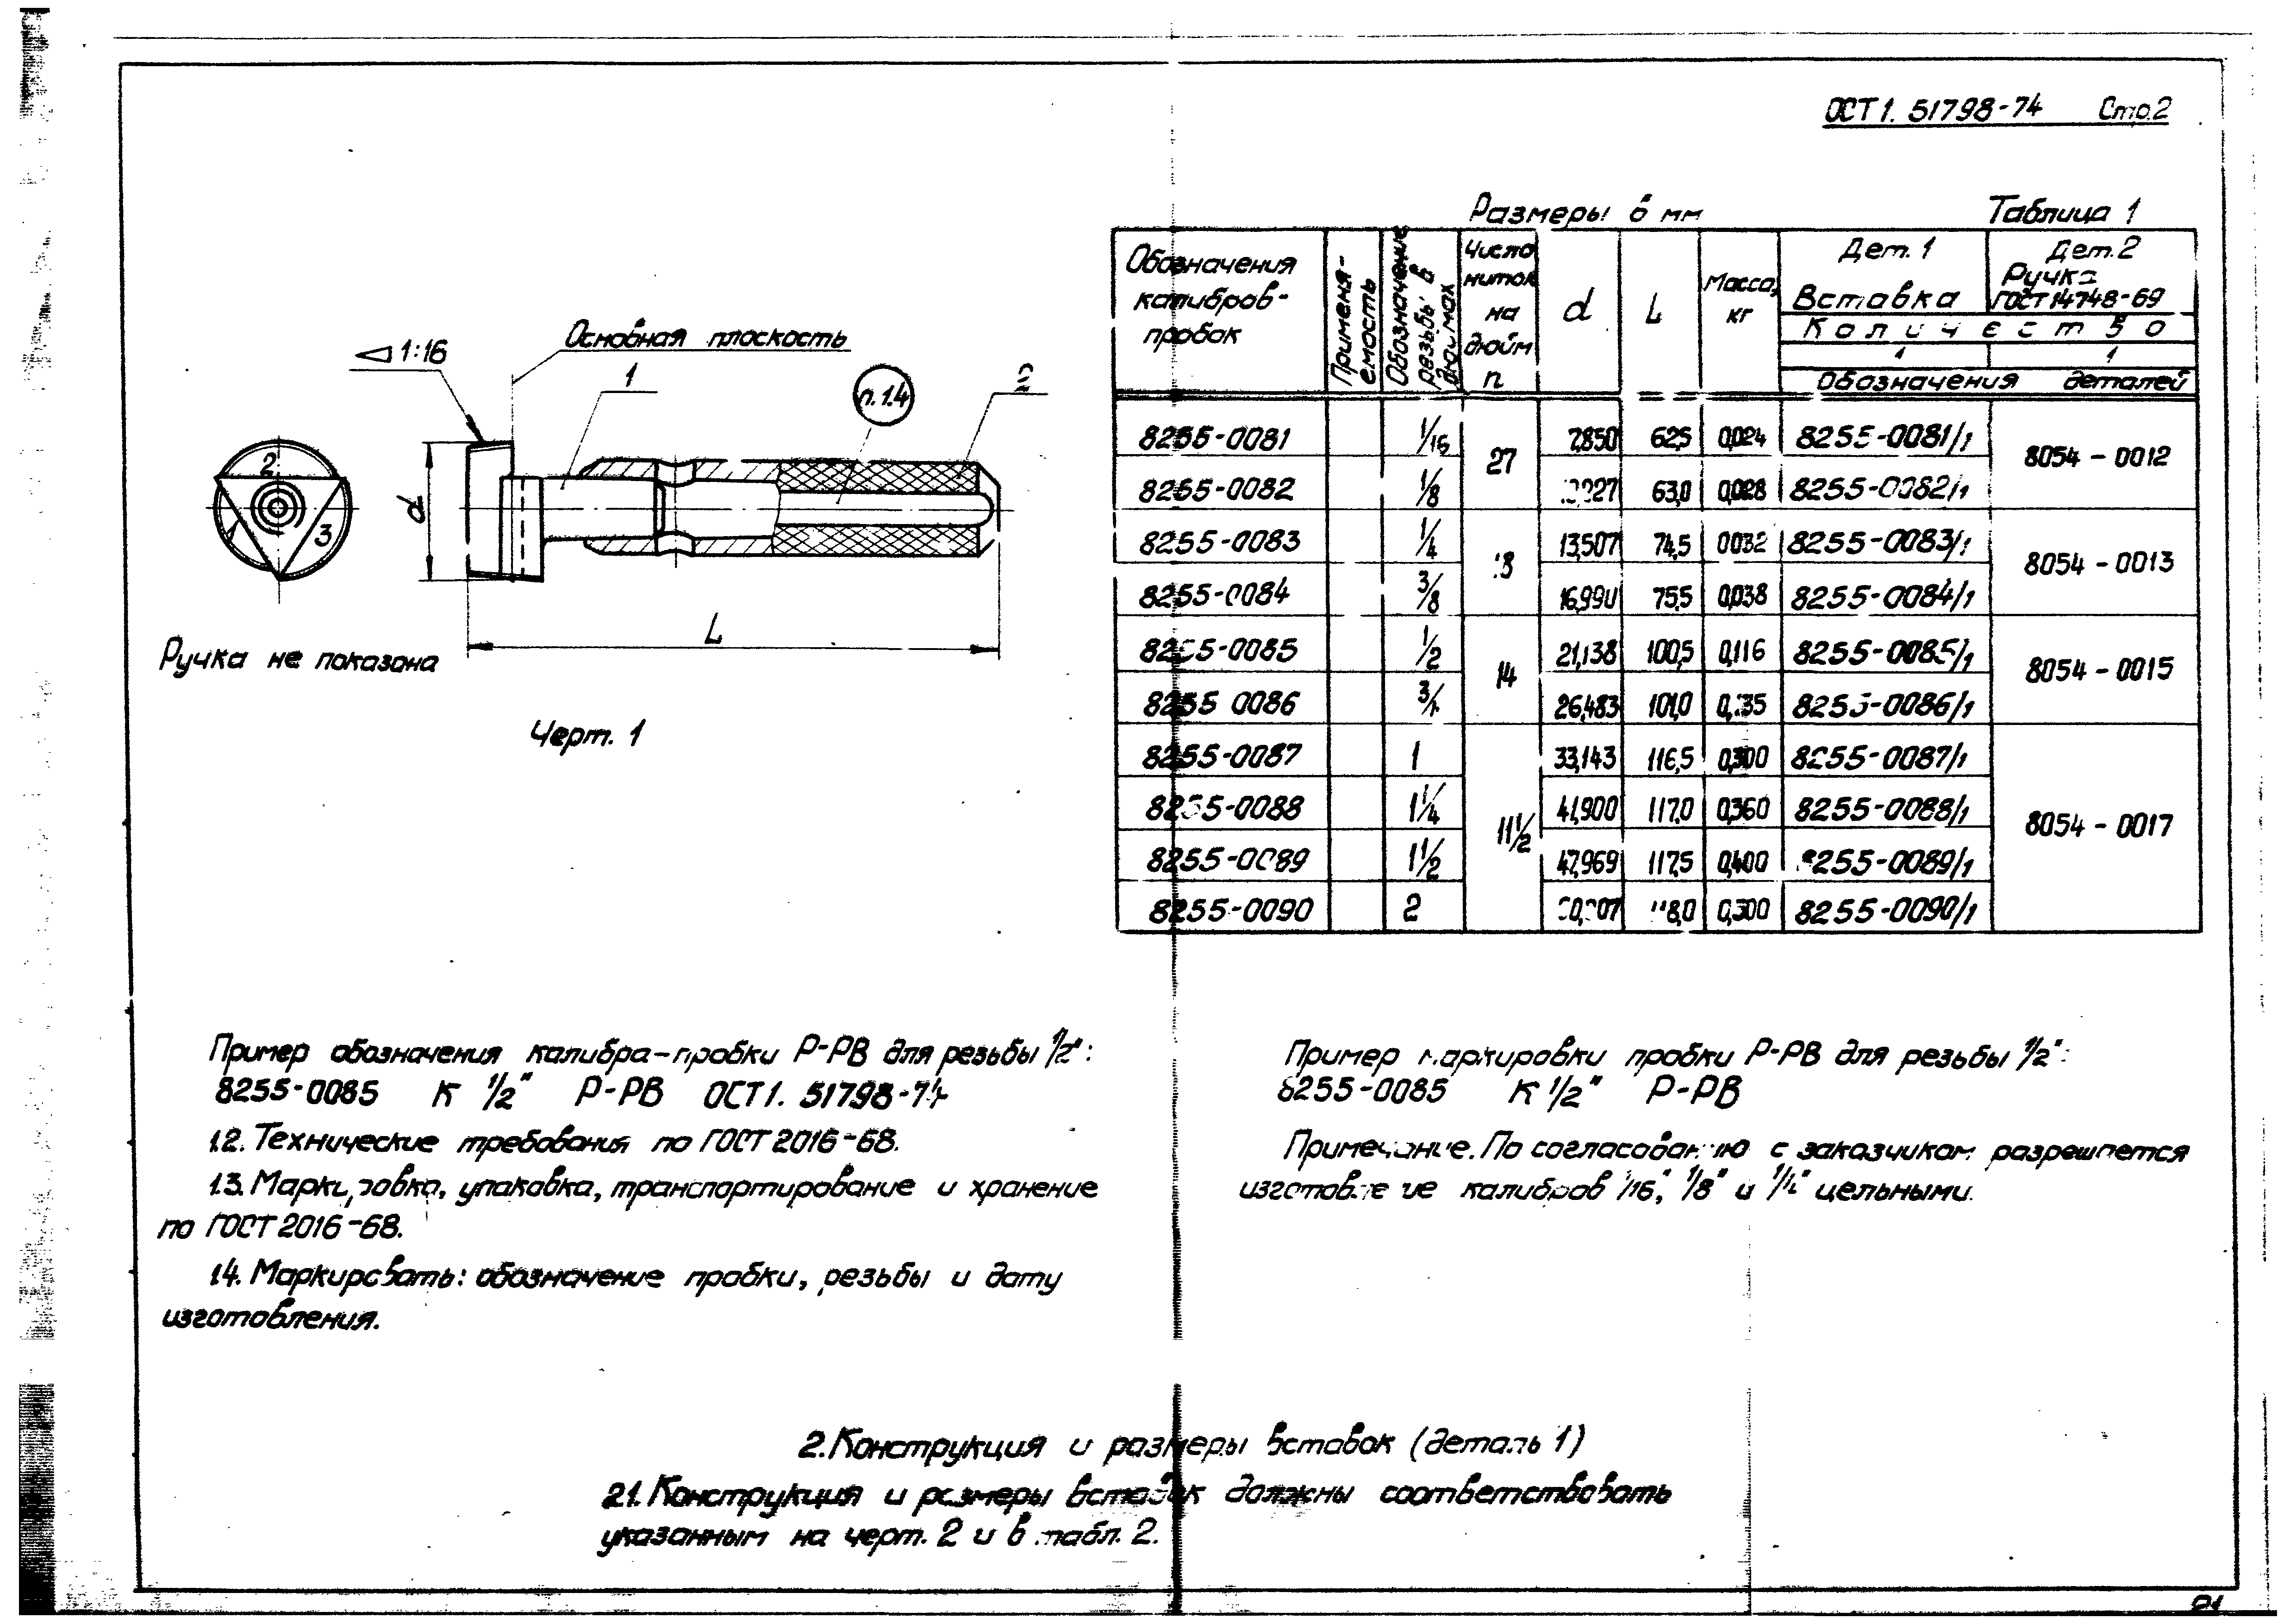 ОСТ 1. 51798-74 Стр.2
Основная плоскость
1:16
1
п.1.4
2
2
1
3
d
L
Ручка не показана
Черт. 1
Размеры в мм
Таблица 1
Обозначения калибров-пробок
Применяемость
Обозначение резьбы в дюймах
Число ниток на дюйм n
d
L
Масса, кг
Дет. 1 Вставка
Дет. 2 Ручка ГОСТ 14748-69
Количество
1 1
Обозначения деталей
8255-0081 1/16 27 7,850 62,5 0,024 8255-0081/1 8054-0012
8255-0082 1/8 63,0 0,028 8255-0082/1
8255-0083 1/4 13,507 74,5 0,032 8255-0083/1 8054-0013
8255-0084 3/8 16,990 75,5 0,038 8255-0084/1
8255-0085 1/2 14 21,138 100,5 0,116 8255-0085/1 8054-0015
8255 0086 26,483 101,0 8255-0086/1
8255-0087 1 11 1/2 33,143 116,5 0,300 8255-0087/1 8054-0017
8255-0088 1 1/4 41,900 117,0 0,360 8255-0088/1
8255-0089 1 1/2 47,969 117,5 0,400 8255-0089/1
8255-0090 2 118,0 0,500 8255-0090/1
Пример обозначения калибра-пробки Р-РВ для резьбы 1/2":
8255-0085 К 1/2" Р-РВ ОСТ 1. 51798-74
1.2. Технические требования по ГОСТ 2016-68.
1.3. Маркировка, упаковка, транспортирование и хранение
по ГОСТ 2016-68.
1.4. Маркировать: обозначение пробки, резьбы и дату
изготовления.
Пример маркировки пробки Р-РВ для резьбы 1/2":
8255-0085 К 1/2" Р-РВ
Примечание. По согласованию с заказчиком разрешается
изготовление калибров 1/16", 1/8" и 1/4" цельными.
2. Конструкция и размеры вставок (деталь 1)
2.1. Конструкция и размеры вставок должны соответствовать
указанным на черт. 2 и в табл. 2.